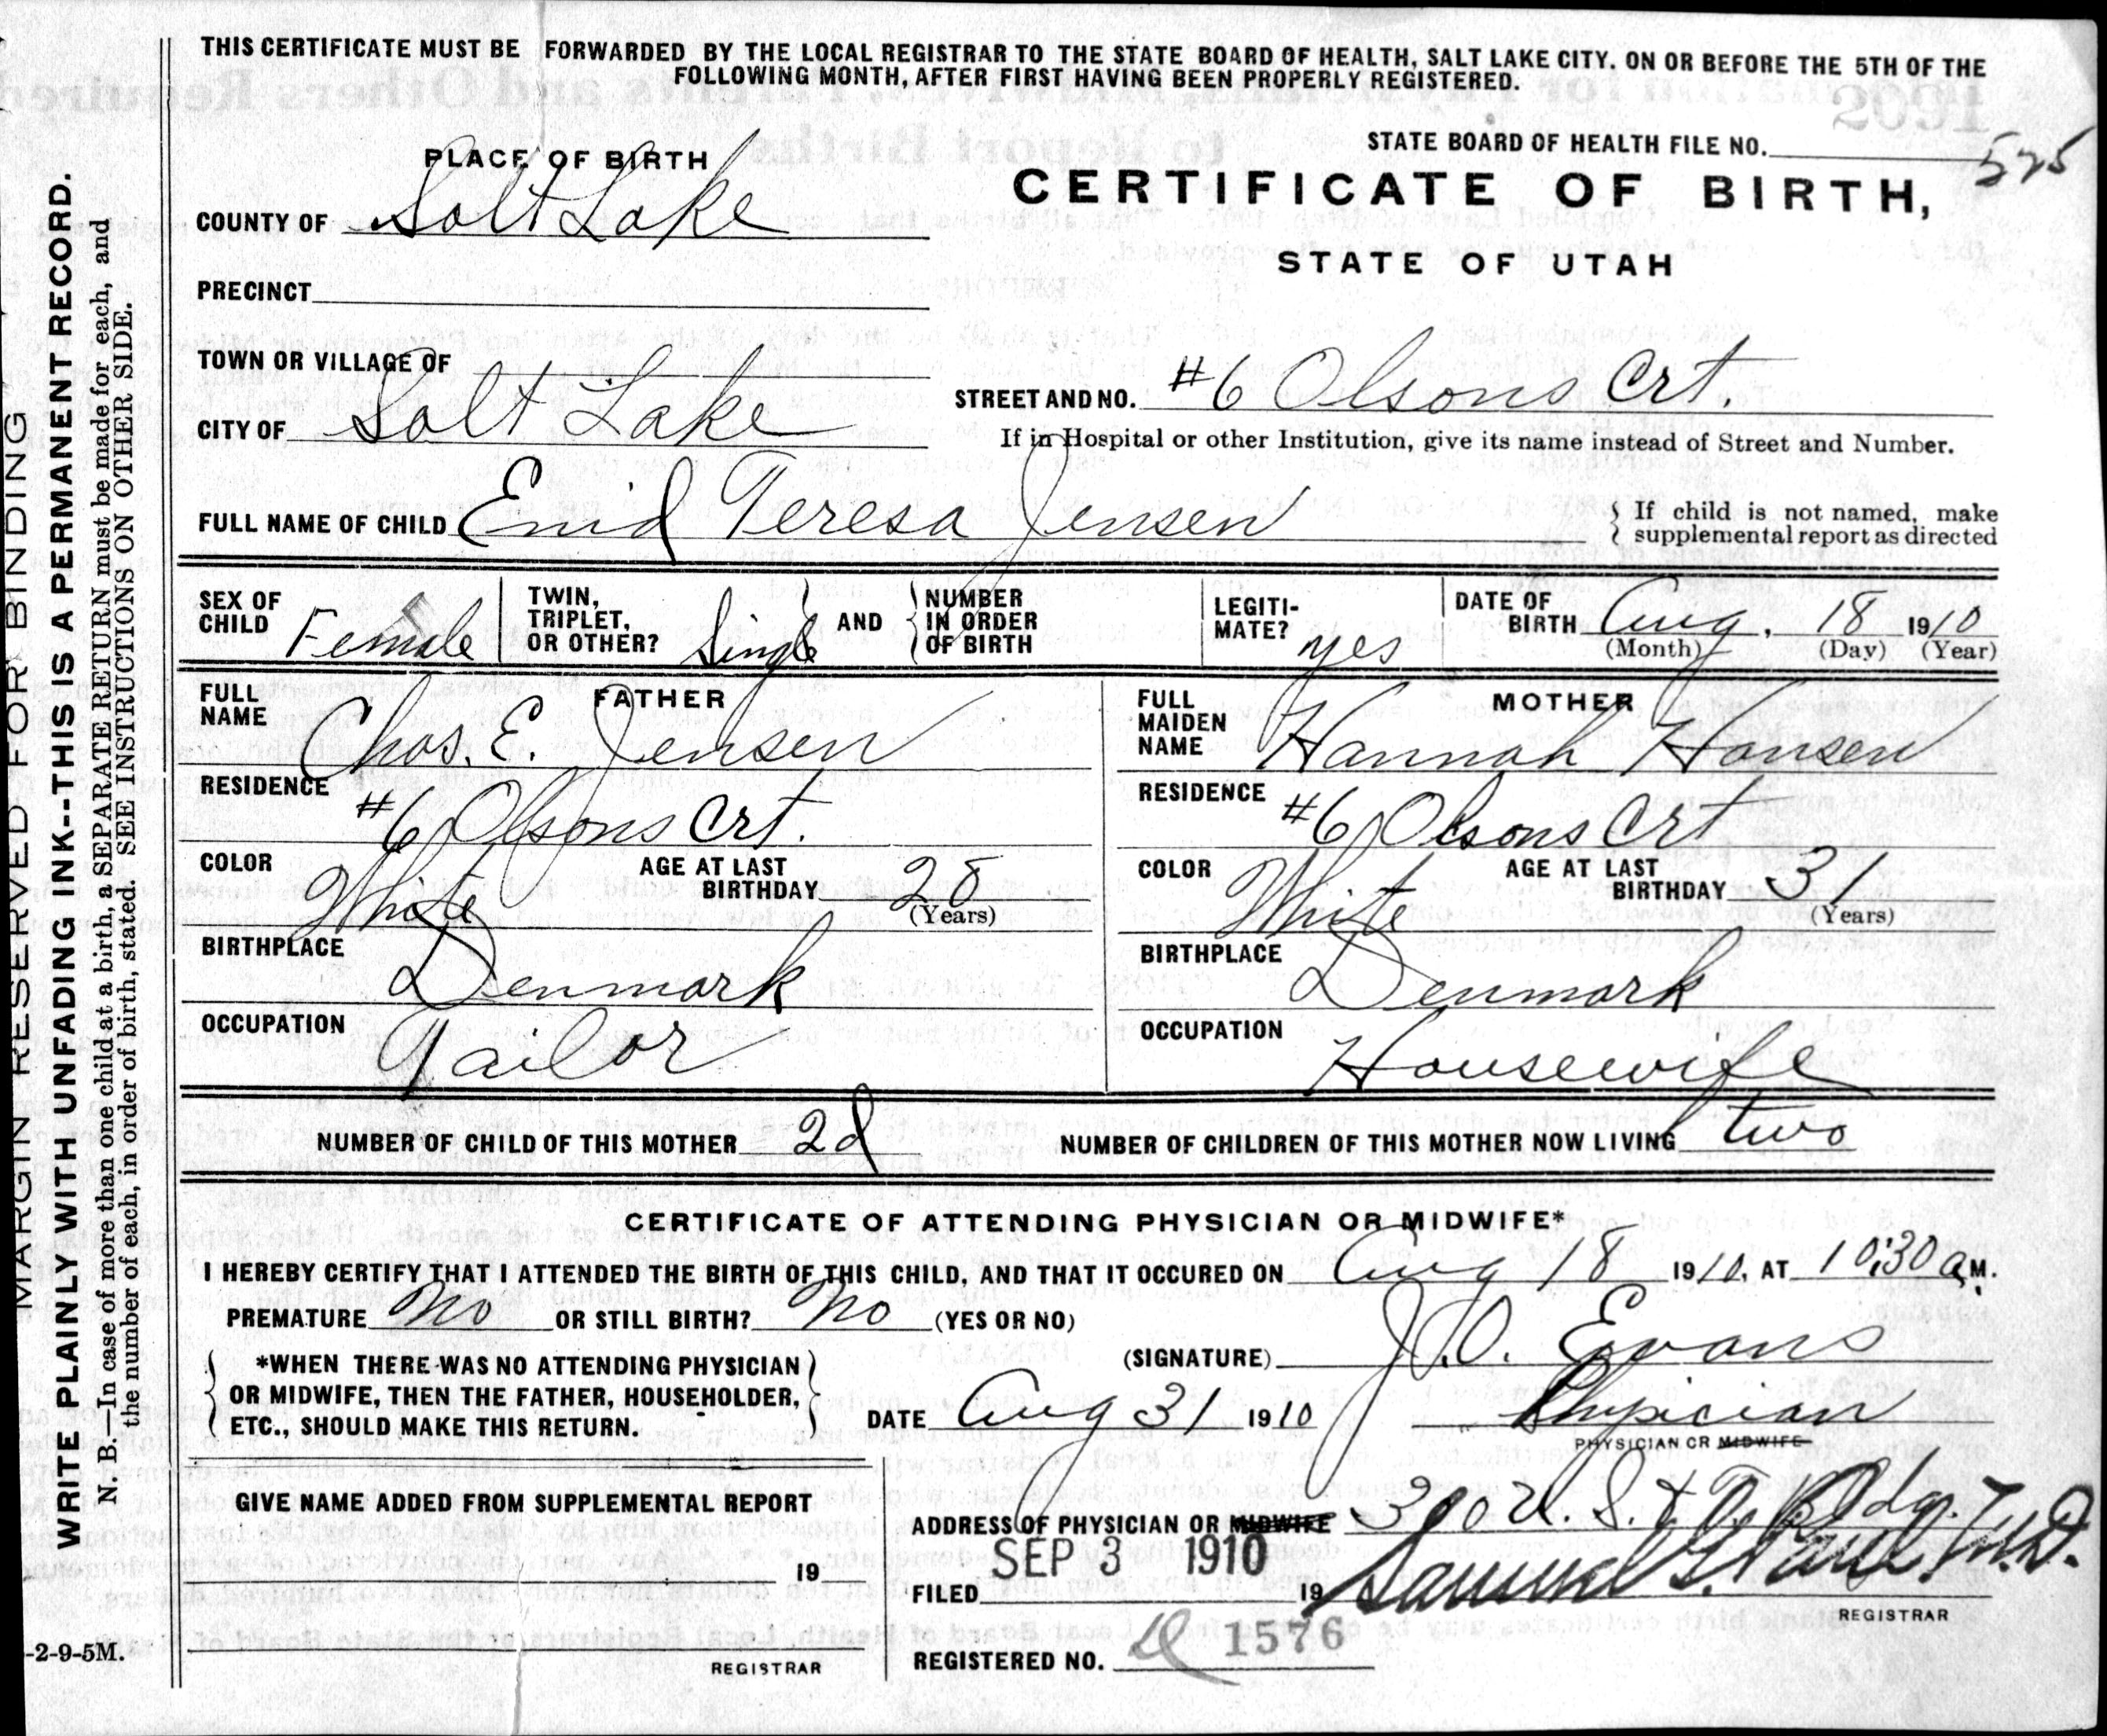 THIS CERTIFICATE MUST BE FORWARDED BY THE LOCAL REGISTRAR TO THE STATE BOARD OF HEALTH, SALT LAKE CITY. ON OR BEFORE THE 5TH OF THE
FOLLOWING MONTH, AFTER FIRST HAVING BEEN PROPERLY REGISTERED.
MARGIN RESERVED FOR BINDING
WRITE PLAINLY WITH UNFADING INK--THIS IS A PERMANENT RECORD.
N. B.—In case of more than one child at a birth, a SEPARATE RETURN must be made for each, and
the number of each, in order of birth, stated. SEE INSTRUCTIONS ON OTHER SIDE.
STATE BOARD OF HEALTH FILE NO. 525
PLACE OF BIRTH
CERTIFICATE OF BIRTH,
COUNTY OF Salt Lake
STATE OF UTAH
PRECINCT
TOWN OR VILLAGE OF
STREET AND NO. #6 Olsons Crt.
CITY OF Salt Lake
If in Hospital or other Institution, give its name instead of Street and Number.
FULL NAME OF CHILD Enid Teresa Jensen
If child is not named, make
supplemental report as directed
SEX OF CHILD Female
TWIN, TRIPLET, OR OTHER? Single
AND
NUMBER IN ORDER OF BIRTH
LEGITIMATE? yes
DATE OF BIRTH Aug. 18 1910
(Month) (Day) (Year)
FATHER
FULL NAME Chas. E. Jensen
RESIDENCE #6 Olsons Crt.
COLOR White
AGE AT LAST BIRTHDAY 28
(Years)
BIRTHPLACE Denmark
OCCUPATION Tailor
MOTHER
FULL MAIDEN NAME Hannah Hansen
RESIDENCE #6 Olsons Crt
COLOR White
AGE AT LAST BIRTHDAY 31
(Years)
BIRTHPLACE Denmark
OCCUPATION Housewife
NUMBER OF CHILD OF THIS MOTHER 2d
NUMBER OF CHILDREN OF THIS MOTHER NOW LIVING two
CERTIFICATE OF ATTENDING PHYSICIAN OR MIDWIFE*
I HEREBY CERTIFY THAT I ATTENDED THE BIRTH OF THIS CHILD, AND THAT IT OCCURED ON Aug 18 1910, AT 10:30 a.M.
PREMATURE No OR STILL BIRTH? No (YES OR NO)
*WHEN THERE WAS NO ATTENDING PHYSICIAN
OR MIDWIFE, THEN THE FATHER, HOUSEHOLDER,
ETC., SHOULD MAKE THIS RETURN.
(SIGNATURE) J.O. Evans
DATE Aug 31 1910
Physician
PHYSICIAN OR MIDWIFE
GIVE NAME ADDED FROM SUPPLEMENTAL REPORT
19
REGISTRAR
ADDRESS OF PHYSICIAN OR MIDWIFE 300 U. S. & T. Bldg.
SEP 3 1910
FILED 19 Samuel G. Paul, M.D.
REGISTRAR
REGISTERED NO. 1576
-2-9-5M.